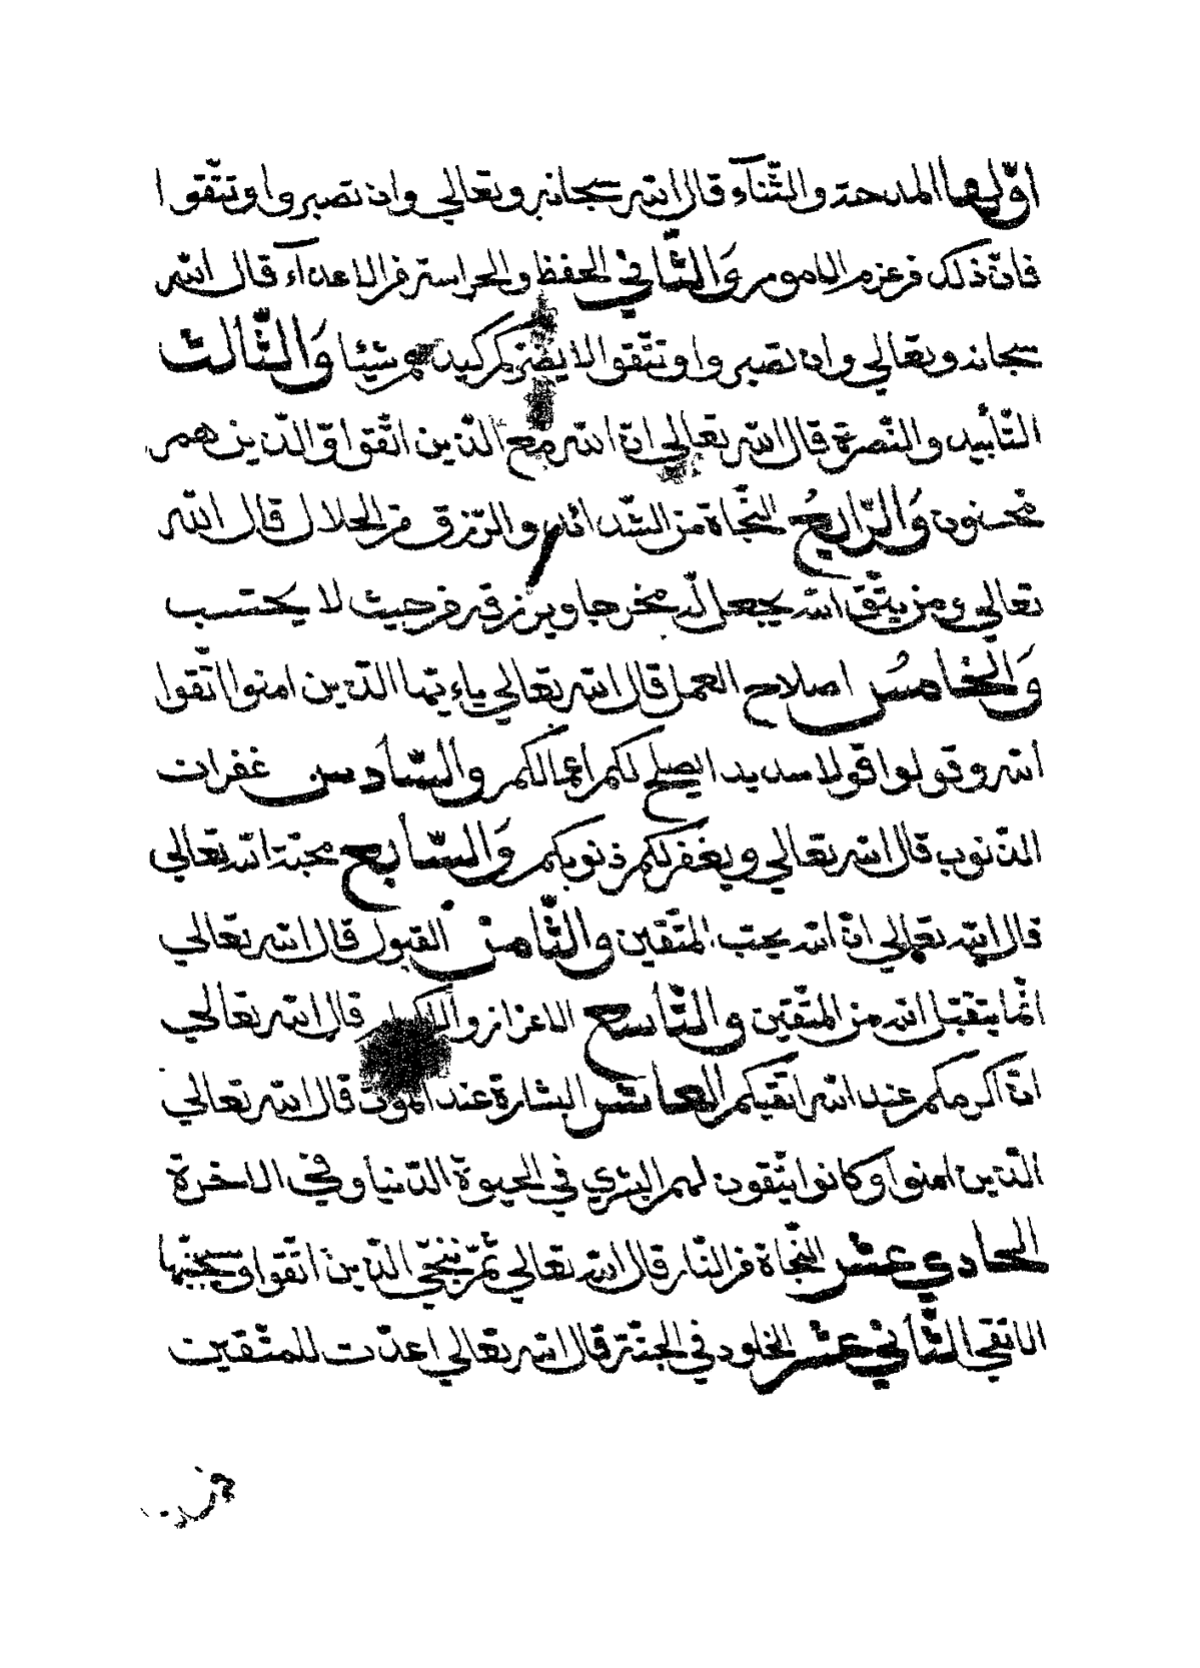 اوّلها المدحة والثّنآء قال الله سبحانه وتعالي وان تصبروا وتتّقوا
فانّ ذلك من عزم الامور والثّاني الحفظ والحراسة من الاعدآء قال الله
سبحانه وتعالي وان تصبروا وتتّقوا لا يضرّكم كيدهم شيئا والثّالث
التّأييد والنّصرة قال الله تعالي انّ الله مع الذّين اتّقوا وّالذّين هم
محسنون والرّابع النّجاة من الشّدائد والرّزق من الحلال قال الله
تعالي ومن يتّق الله يجعل لّه مخرجا ويرزقه من حيث لا يحتسب
والخامس اصلاح العمل قال الله تعالي ياءيّها الذّين امنوا اتّقوا
الله وقولوا قولا سديدا يصلح لكم أعمالكم والسّادس غفران
الذّنوب قال الله تعالي ويغفر لكم ذنوبكم والسّابع محبّة الله تعالي
قال الله تعالي انّ الله يحبّ المتّقين والثّامن القبول قال الله تعالي
انّما يتقبّل الله من المتّقين والتّاسع الاعزاز والاكرام قال الله تعالي
انّ اكرمكم عند الله اتقيكم العاشر البشارة عند الموت قال الله تعالي
الذّين امنوا وكانوا يتّقون لهم البشري في الحيوة الدّنيا وفي الاخرة
الحادي عشر النّجاة من النّار قال الله تعالي ثمّ ننجّي الذّين اتّقوا وسيجنّبها
الاتقي الثّاني عشر الخلود في الجنّة قال الله تعالي اعدّت للمتّقين